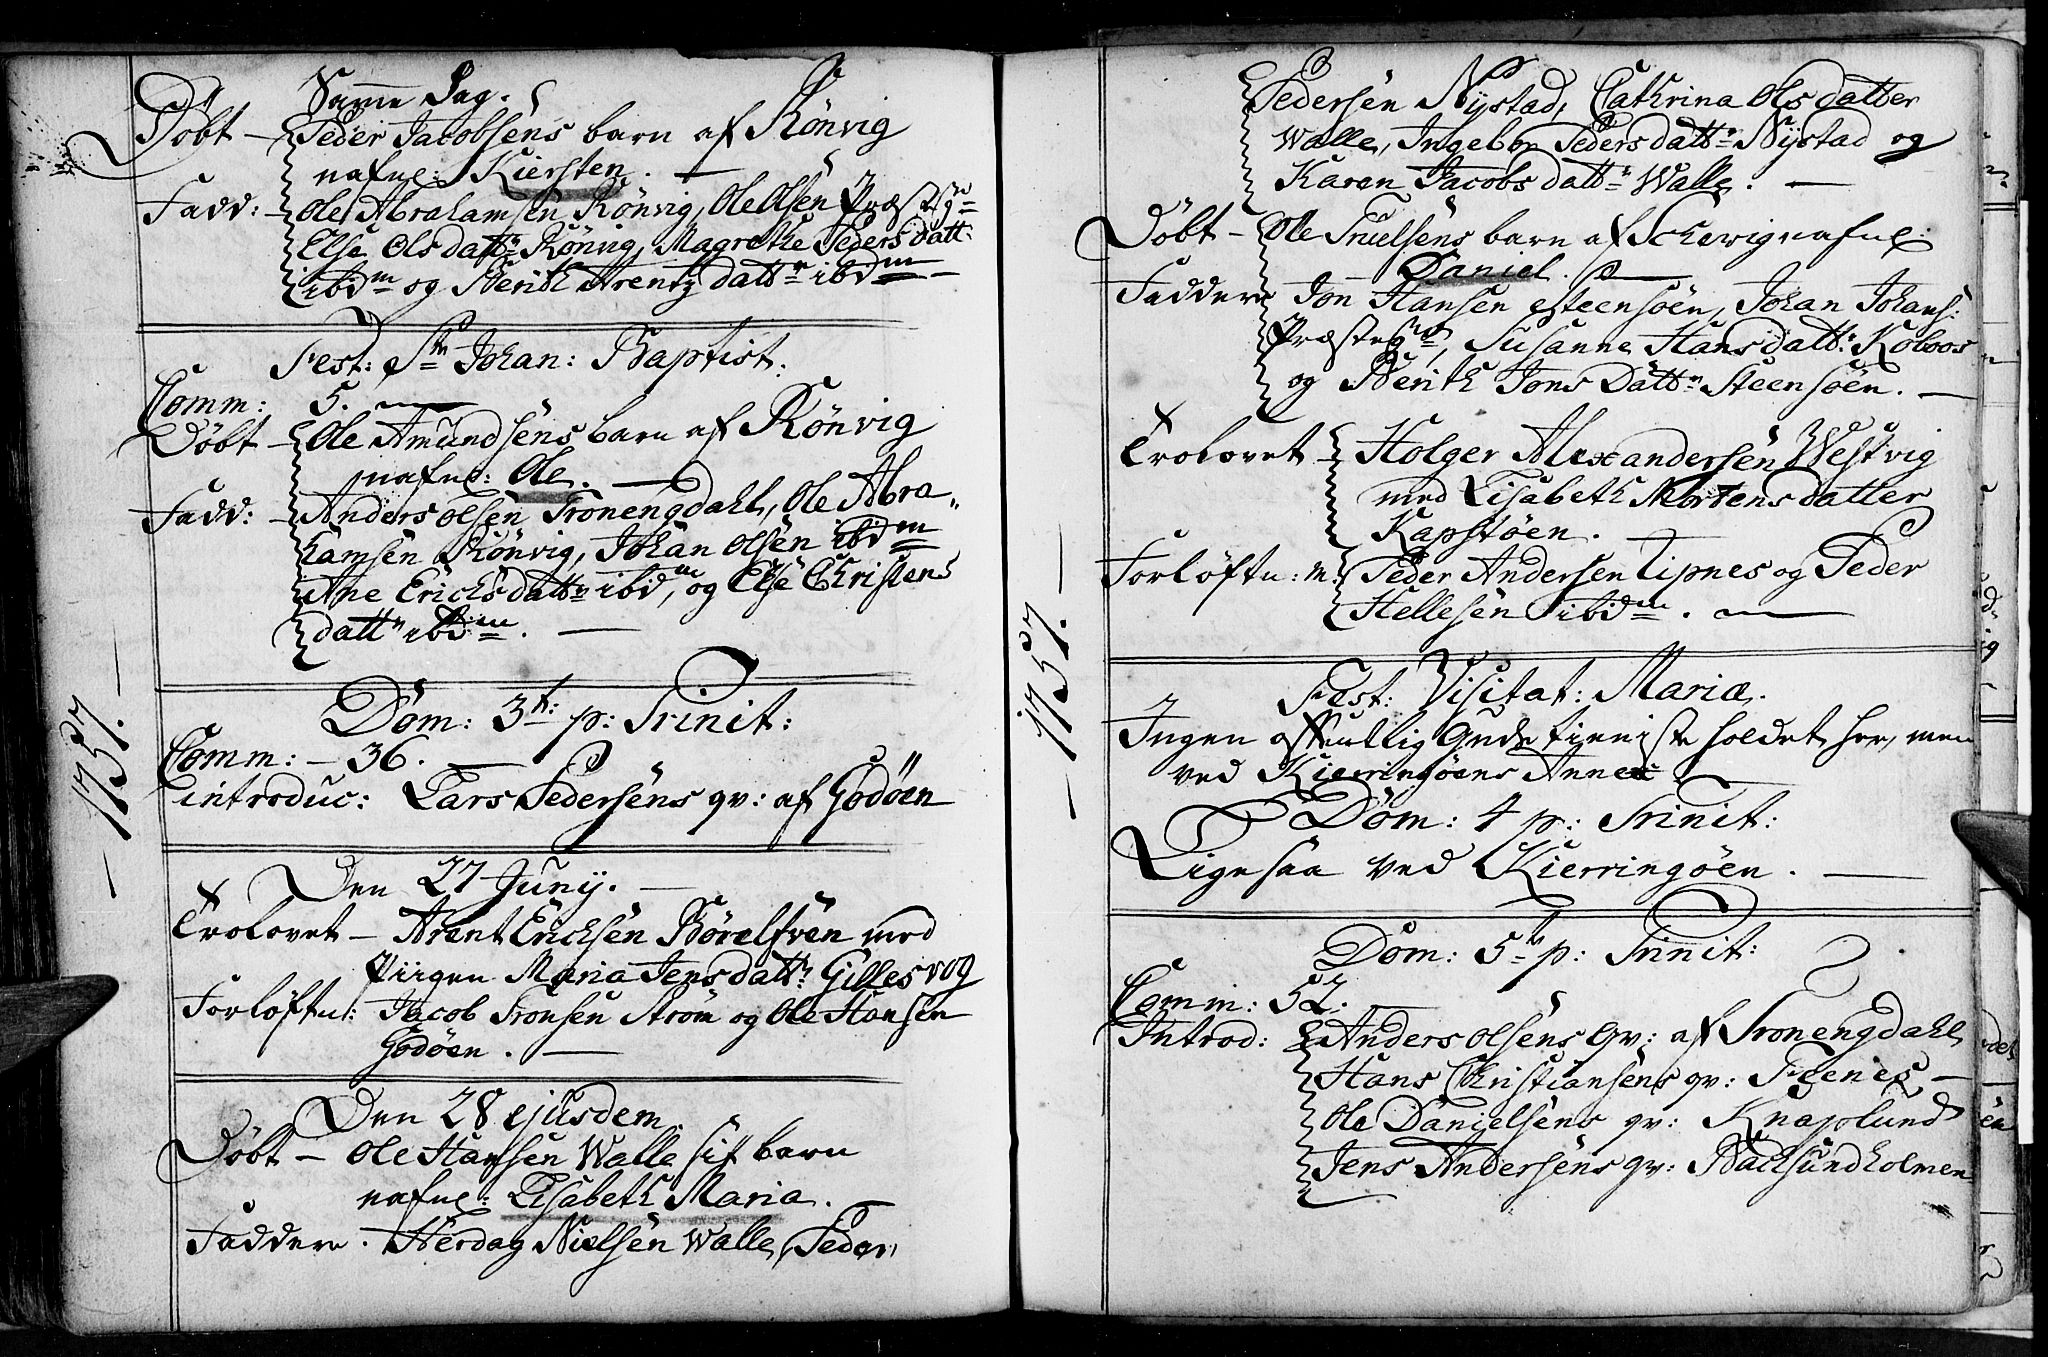 Samme Dag.
Döbt – Peder Jacobsens barn af Rönvig
nafnl: Kiersten.
Fadd: – Ole Abrahamsen Rönvig, Ole Olsen Præsteg:
Else Olsdattr Rönvig, Magrethe Pedersdatt:
ibidm og Berith Arentzdattr ibidm
Fest: Stn Johan: Baptist:
Comm: 5.
Döbt – Ole Amundsens barn af Rönvig
nafnl: Ole.
Fadd: – Anders Olsen Tronengdahl, Ole Abra„
hamsen Rönvig, Johan Olsen ibidm
Ane Ericksdattr ibidm, og Else Christens
dattr ibidm.
Dom: 3t: p: Trinit:
Comm: – 36.
introduc: Lars Pedersens qv: af Godöen
– 1757. –
Den 27 Junij.
Trolovet – Arent Ericksen Börelfven med
Piigen Maria Jensdattr Gillesvog
Forlöftn: Jacob Tronsen Ström og Ole Hansen
Godöen.
Den 28 ejusdem.
Döbt – Ole Hansen Walle sit barn
nafnl: Lisabeth Maria.
Faddere. Herdag Nielsen Walle, Peder
Pedersen Nystad, Cathrina Olsdatter
Walle, Ingebor Pedersdattr Nystad og
Karen Jacobsdattr Walle.
Döbt – Ole Truelsens barn af Schevig nafnl:
Daniel.
Faddere Jon Hansen Steensöen, Johan Johans:
Præsteg:, Susanne Hansdattr Koboos
og Berith Jonsdattr Steensöen.
Trolovet – Holger Alexandersen Westvig
med Lisabeth Mortensdatter
Kapstöen.
Forlöftn: m: Peder Andersen Lipnes og Peder
Hellesen ibidm.
– 1757. –
Fest: Visitat: Mariæ.
Ingen offentlig Gudstienniste holdet her, men
ved Kierringöens Annex
Dom: 4 p: Trinit:
Ligesaa ved Kierringöen.
Dom: 5tn p: Trinit:
Comm: 52.
Introd: Anders Olsens qv: af Tronengdahl
Hans Christiansens qv:
Ole Danielsens qv: Knaplund
Jens Andersens qv: Backsundholmen